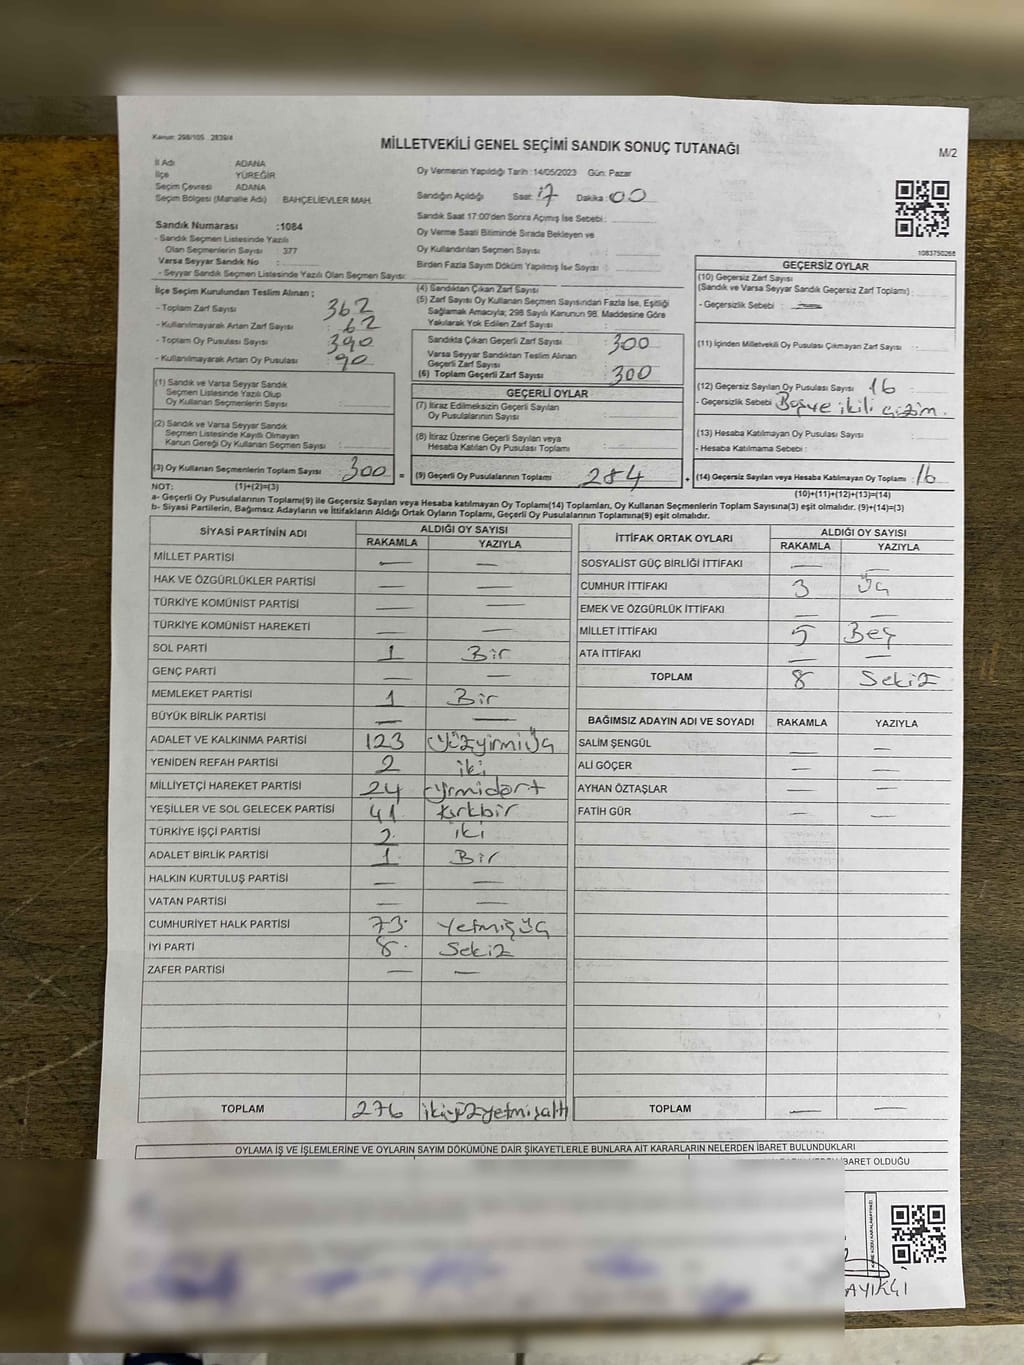 Kanun: 298/105 . 2839/4
MİLLETVEKİLİ GENEL SEÇİMİ SANDIK SONUÇ TUTANAĞI
M/2
İl Adı : ADANA
İlçe : YÜREĞİR
Seçim Çevresi : ADANA
Seçim Bölgesi (Mahalle Adı) BAHÇELİEVLER MAH.
Sandık Numarası :1084
- Sandık Seçmen Listesinde Yazılı
Olan Seçmenlerin Sayısı : 377
Varsa Seyyar Sandık No :
- Seyyar Sandık Seçmen Listesinde Yazılı Olan Seçmen Sayısı:
Oy Vermenin Yapıldığı Tarih :14/05/2023 Gün: Pazar
Sandığın Açıldığı Saat: 17 Dakika :00
Sandık Saat 17:00'den Sonra Açılmış İse Sebebi :
Oy Verme Saati Bitiminde Sırada Bekleyen ve
Oy Kullandırılan Seçmen Sayısı :
Birden Fazla Sayım Döküm Yapılmış İse Sayısı :
1083750268
İlçe Seçim Kurulundan Teslim Alınan ;
- Toplam Zarf Sayısı : 362
- Kullanılmayarak Artan Zarf Sayısı : 62
- Toplam Oy Pusulası Sayısı : 390
- Kullanılmayarak Artan Oy Pusulası : 90
(1) Sandık ve Varsa Seyyar Sandık
Seçmen Listesinde Yazılı Olup
Oy Kullanan Seçmenlerin Sayısı :
(2) Sandık ve Varsa Seyyar Sandık
Seçmen Listesinde Kayıtlı Olmayan
Kanun Gereği Oy Kullanan Seçmen Sayısı :
(3) Oy Kullanan Seçmenlerin Toplam Sayısı : 300 =
(4) Sandıktan Çıkan Zarf Sayısı :
(5) Zarf Sayısı Oy Kullanan Seçmen Sayısından Fazla İse, Eşitliği
Sağlamak Amacıyla; 298 Sayılı Kanunun 98. Maddesine Göre
Yakılarak Yok Edilen Zarf Sayısı :
Sandıkta Çıkan Geçerli Zarf Sayısı : 300
Varsa Seyyar Sandıktan Teslim Alınan
Geçerli Zarf Sayısı :
(6) Toplam Geçerli Zarf Sayısı : 300
GEÇERLİ OYLAR
(7) İtiraz Edilmeksizin Geçerli Sayılan
Oy Pusulalarının Sayısı :
(8) İtiraz Üzerine Geçerli Sayılan veya
Hesaba Katılan Oy Pusulası Toplamı :
(9) Geçerli Oy Pusulalarının Toplamı : 284 +
GEÇERSİZ OYLAR
(10) Geçersiz Zarf Sayısı
(Sandık ve Varsa Seyyar Sandık Geçersiz Zarf Toplamı) :
- Geçersizlik Sebebi : —
(11) İçinden Milletvekili Oy Pusulası Çıkmayan Zarf Sayısı :
(12) Geçersiz Sayılan Oy Pusulası Sayısı : 16
- Geçersizlik Sebebi : Boş ve ikili çizim.
(13) Hesaba Katılmayan Oy Pusulası Sayısı :
- Hesaba Katılmama Sebebi :
(14) Geçersiz Sayılan veya Hesaba Katılmayan Oy Toplamı : 16
NOT: (1)+(2)=(3)
(10)+(11)+(12)+(13)=(14)
a- Geçerli Oy Pusulalarının Toplamı(9) ile Geçersiz Sayılan veya Hesaba katılmayan Oy Toplamı(14) Toplamları, Oy Kullanan Seçmenlerin Toplam Sayısına(3) eşit olmalıdır. (9)+(14)=(3)
b- Siyasi Partilerin, Bağımsız Adayların ve İttifakların Aldığı Ortak Oyların Toplamı, Geçerli Oy Pusulalarının Toplamına(9) eşit olmalıdır.
SİYASİ PARTİNİN ADI ALDIĞI OY SAYISI
RAKAMLA YAZIYLA
MİLLET PARTİSİ — —
HAK VE ÖZGÜRLÜKLER PARTİSİ — —
TÜRKİYE KOMÜNİST PARTİSİ — —
TÜRKİYE KOMÜNİST HAREKETİ — —
SOL PARTİ 1 Bir
GENÇ PARTİ — —
MEMLEKET PARTİSİ 1 Bir
BÜYÜK BİRLİK PARTİSİ — —
ADALET VE KALKINMA PARTİSİ 123 yüzyirmiüç
YENİDEN REFAH PARTİSİ 2 iki
MİLLİYETÇİ HAREKET PARTİSİ 24 yirmidört
YEŞİLLER VE SOL GELECEK PARTİSİ 41 kırkbir
TÜRKİYE İŞÇİ PARTİSİ 2 iki
ADALET BİRLİK PARTİSİ 1 Bir
HALKIN KURTULUŞ PARTİSİ — —
VATAN PARTİSİ — —
CUMHURİYET HALK PARTİSİ 73 yetmişüç
İYİ PARTİ 8 Sekiz
ZAFER PARTİSİ — —
TOPLAM 276 ikiyüzyetmişaltı
İTTİFAK ORTAK OYLARI ALDIĞI OY SAYISI
RAKAMLA YAZIYLA
SOSYALİST GÜÇ BİRLİĞİ İTTİFAKI — —
CUMHUR İTTİFAKI 3 Üç
EMEK VE ÖZGÜRLÜK İTTİFAKI — —
MİLLET İTTİFAKI 5 Beş
ATA İTTİFAKI — —
TOPLAM 8 Sekiz
BAĞIMSIZ ADAYIN ADI VE SOYADI RAKAMLA YAZIYLA
SALİM ŞENGÜL — —
ALİ GÖÇER — —
AYHAN ÖZTAŞLAR — —
FATİH GÜR — —
TOPLAM — —
OYLAMA İŞ VE İŞLEMLERİNE VE OYLARIN SAYIM DÖKÜMÜNE DAİR ŞİKAYETLERLE BUNLARA AİT KARARLARIN NELERDEN İBARET BULUNDUKLARI
İBARET OLDUĞU
AYIKÇI